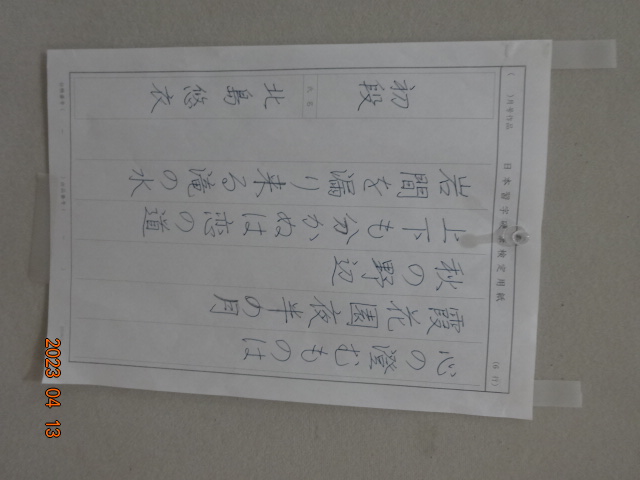 ( )月号作品 日本習字 検定用紙 (6行)
心の澄むものは
霞花園夜半の月
秋の野辺
上下も分かぬは恋の道
岩間を漏り来る滝の水
初段
氏名
北島悠衣
2023 04 13